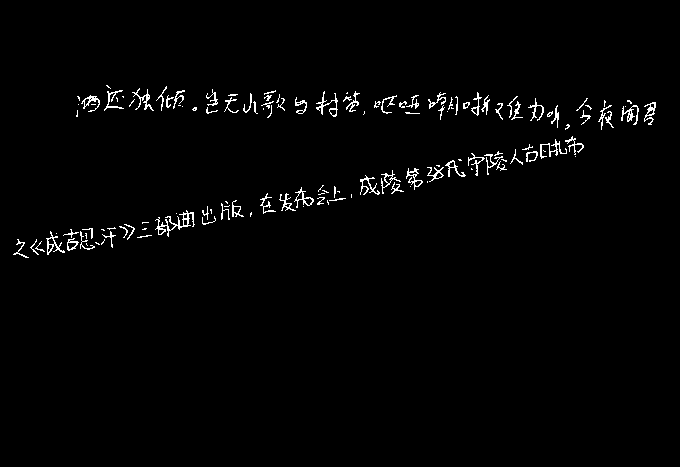 酒还独倾。岂无山歌与村笛,呕哑嘲哳难为听。今夜闻君
之《成吉思汗》三部曲出版,在发布会上,成陵第38代守陵人古日扎布